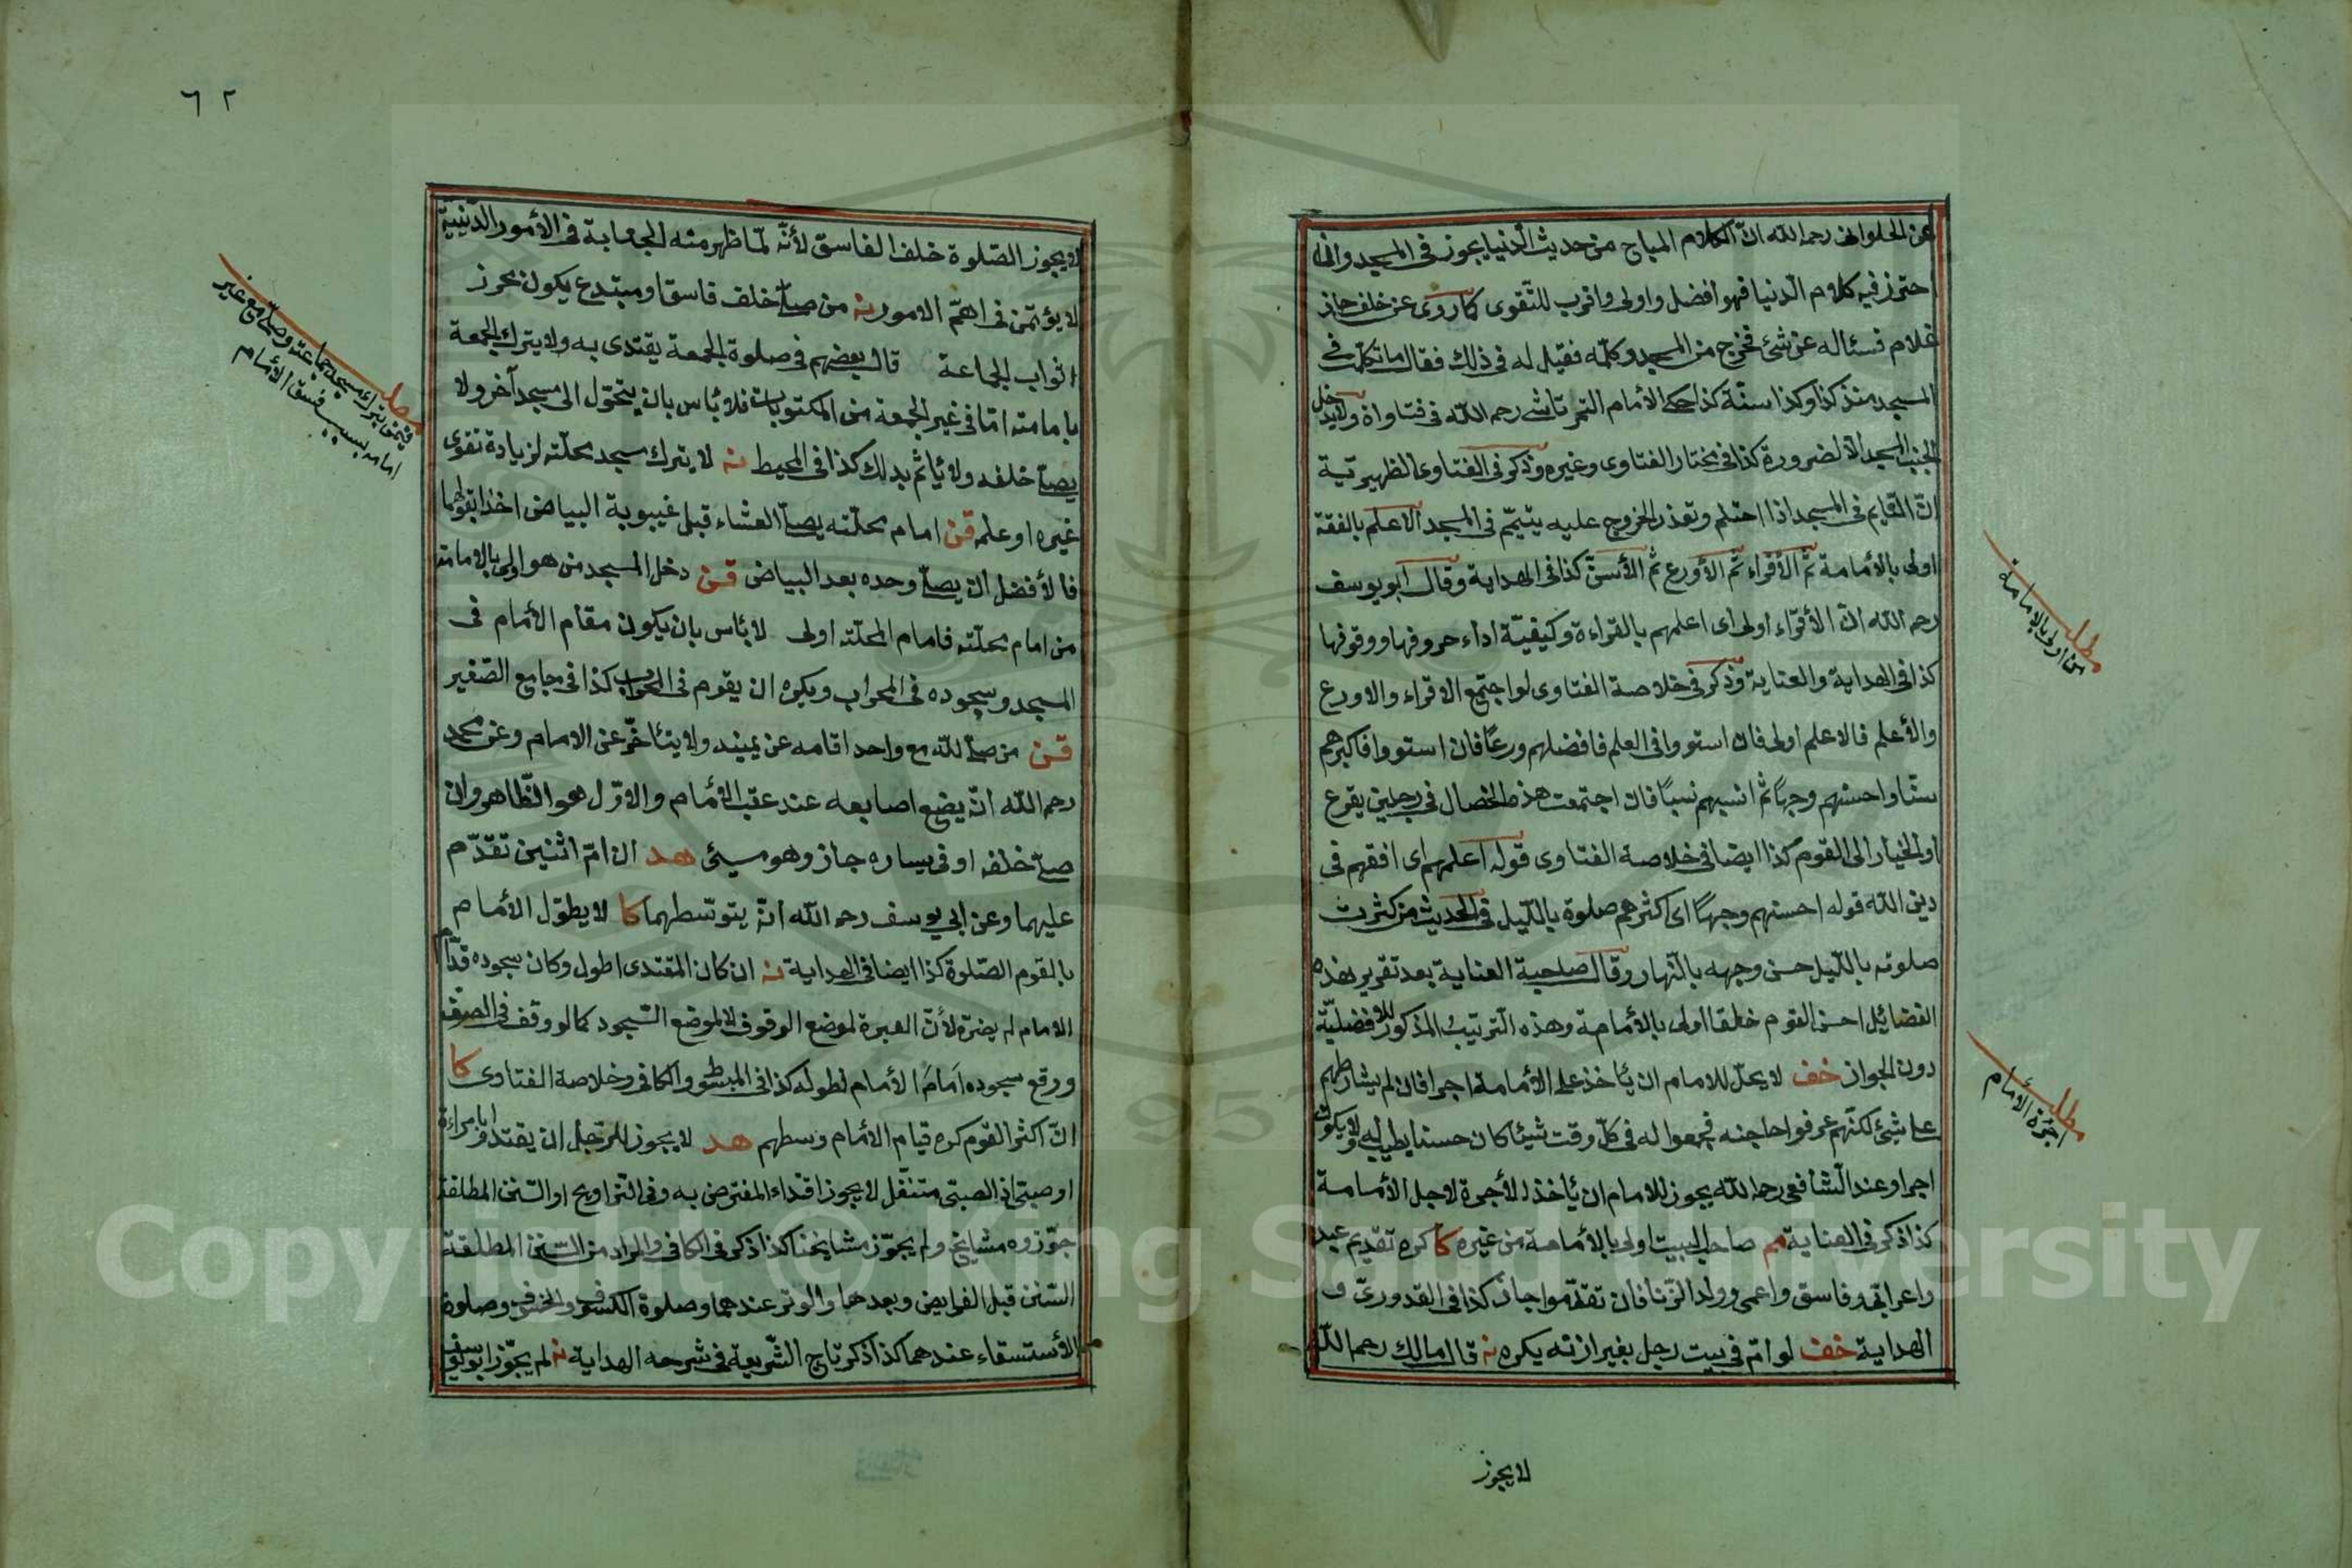 عن الحلوانى رحمه الله انّ الكلام المباح من حديث الدّنيا يجوز فى المسجد وان
احترز فيه كلام الدّنيا فهو افضل واولى واقرب للتّقوى كما روى عن خلف جاز
غلام فسئاله عن شئ فخرج من المسجد وكلّمه فقيل له فى ذلك فقال ما تكلّمت فى
المسجد منذ كذا وكذا سنة كذا حكى الأمام التمرتاشى رحمه الله فى فتاواه ولا يدخل
الجنب المسجد الّا لضرورة كذا فى مختار الفتاوى وغيره وذكر فى الفتاوى الظهيريّة
انّ القايم فى المسجد اذا احتلم وتعذر الخروج عليه يتيمّم فى المسجد الأعلم بالفقه
اولى بالأمامة ثم الأقراء ثم الأورع ثم الأسنّ كذا فى الهداية وقال ابو يوسف
رحمه الله انّ الأقراء اولى اى اعلمهم بالقراءة وكيفيّة اداء حروفها ووقوفها
كذا فى الهداية والعناية وذكر فى خلاصة الفتاوى لو اجتمع الاقراء والاورع
والأعلم فالاعلم اولى فان استووا فى العلم فافضلهم ورعًا فان استووا فاكبرهم
سنّا واحسنهم وجهًا ثم انسبهم نسبًا فان اجتمعت هذه الخصال فى رجلين يقرع
او الخيار الى القوم كذا ايضا فى خلاصة الفتاوى قوله اعلمهم اى افقههم فى
دين الله قوله احسنهم وجهًا اى اكثرهم صلوة بالّليل فى الحديث من كثرت
صلوته بالّليل حسن وجهه بالنّهار وقال صاحبة العناية بعد تقرير هذه
الفضائيل احسن القوم خلقا اولى بالأمامة وهذه التّرتيب المذكور للافضليّة
دون الجواز خف لا يحلّ للامام ان يأخذ على الأمامة اجرا فان لم يشارطهم
على شئ لكنّهم عرفوا حاجته فجمعوا له فى كلّ وقت شيئا كان حسنا يطيب له ولا يكون
اجرا وعند الشّافعى رحمه الله يجوز للامام ان يأخذ الأجرة لاجل الأمامة
كذا ذكر فى العناية مم صاحب البيت اولى بالأمامة من غيره كا كره تقديم عبد
واعرابى وفاسق واعمى وولد الزّنا فان تقدّموا جاز كذا فى القدورىّ و
الهداية خف لو امّ فى بيت رجل بغير اذنه يكره نه قال مالك رحمه الله
لا يجوز
مطلب
من اولى بالامامة
مطلب
اجرة الأمام
٦٢
لا يجوز الصّلوة خلف الفاسق لأنّه لمّا ظهر منه الجعابة فى الأمور الدّينيّة
لا يؤتمن فى اهمّ الامور نه من صلّى خلف فاسق او مبتدع يكون محرز
اثواب الجماعة قال بعضهم فى صلوة الجمعة يقتدى به ولا يترك الجمعة
بامامته امّا فى غير الجمعة من المكتوبات فلا بأس بان يتحوّل الى مسجد آخر ولا
يصلّى خلفه ولا يأثم بذلك كذا فى المحيط نه لا يترك مسجد محلّته لزيادة تقوى
غيره او علمه قن امام محلّته يصلّى العشاء قبل غيبوبة البياض اخذا بقولهما
فالأفضل ان يصلّى وحده بعد البياض قن دخل المسجد من هو اولى بالامامة
من امام محلّته فامام المحلّة اولى لا بأس بان يكون مقام الأمام فى
المسجد وسجوده فى المحراب ويكره ان يقوم فى المحراب كذا فى جامع الصّغير
قن من صلّى لله مع واحد اقامه عن يمينه ولا يتأخّر عن الامام وعن محمد
رحمه الله انّه يضع اصابعه عند عقب الأمام والاوّل هو الظّاهر وان
صلّى خلفه او فى يساره جاز وهو مسيئ هد ان امّ اثنين تقدّم
عليهما وعن ابي يوسف رحمه الله انّه يتوسّطهما كا لا يطوّل الأمام
بالقوم الصّلوة كذا ايضا فى الهداية نه ان كان المقتدى اطول وكان سجوده قدّام
الامام لم يضرّه لأنّ العبرة لموضع الوقوف لا لموضع السّجود كما لو وقف فى الصّفّ
ووقع سجوده امام الأمام لطوله كذا فى المبسوط والكافى وخلاصة الفتاوى كا
انّ اكثر القوم كره قيام الأمام وسطهم هد لا يجوز للرّجل ان يقتدوا بامراءة
او صبى انّ الصبىّ متنفّل لا يجوز اقتداء المفترض به وفى التّراويح او السّنن المطلقة
جوّزه مشايخ ولم يجوّز مشايخنا كذا ذكر فى الكافى والمراد من السّنن المطلقة
السّنن قبل الفرايض وبعدها والوتر عندهما وصلوة الكسوف والخسوف وصلوة
الأستسقاء عندهما كذا ذكر تاج الشّريعة فى شرحه الهداية نه لم يجوّز ابو يوسف
مطلب
فيمن يترك مسجد جماعته وصلّى مع غير
امامه بسبب فسق الأمام
Copyright © King Saud University
957